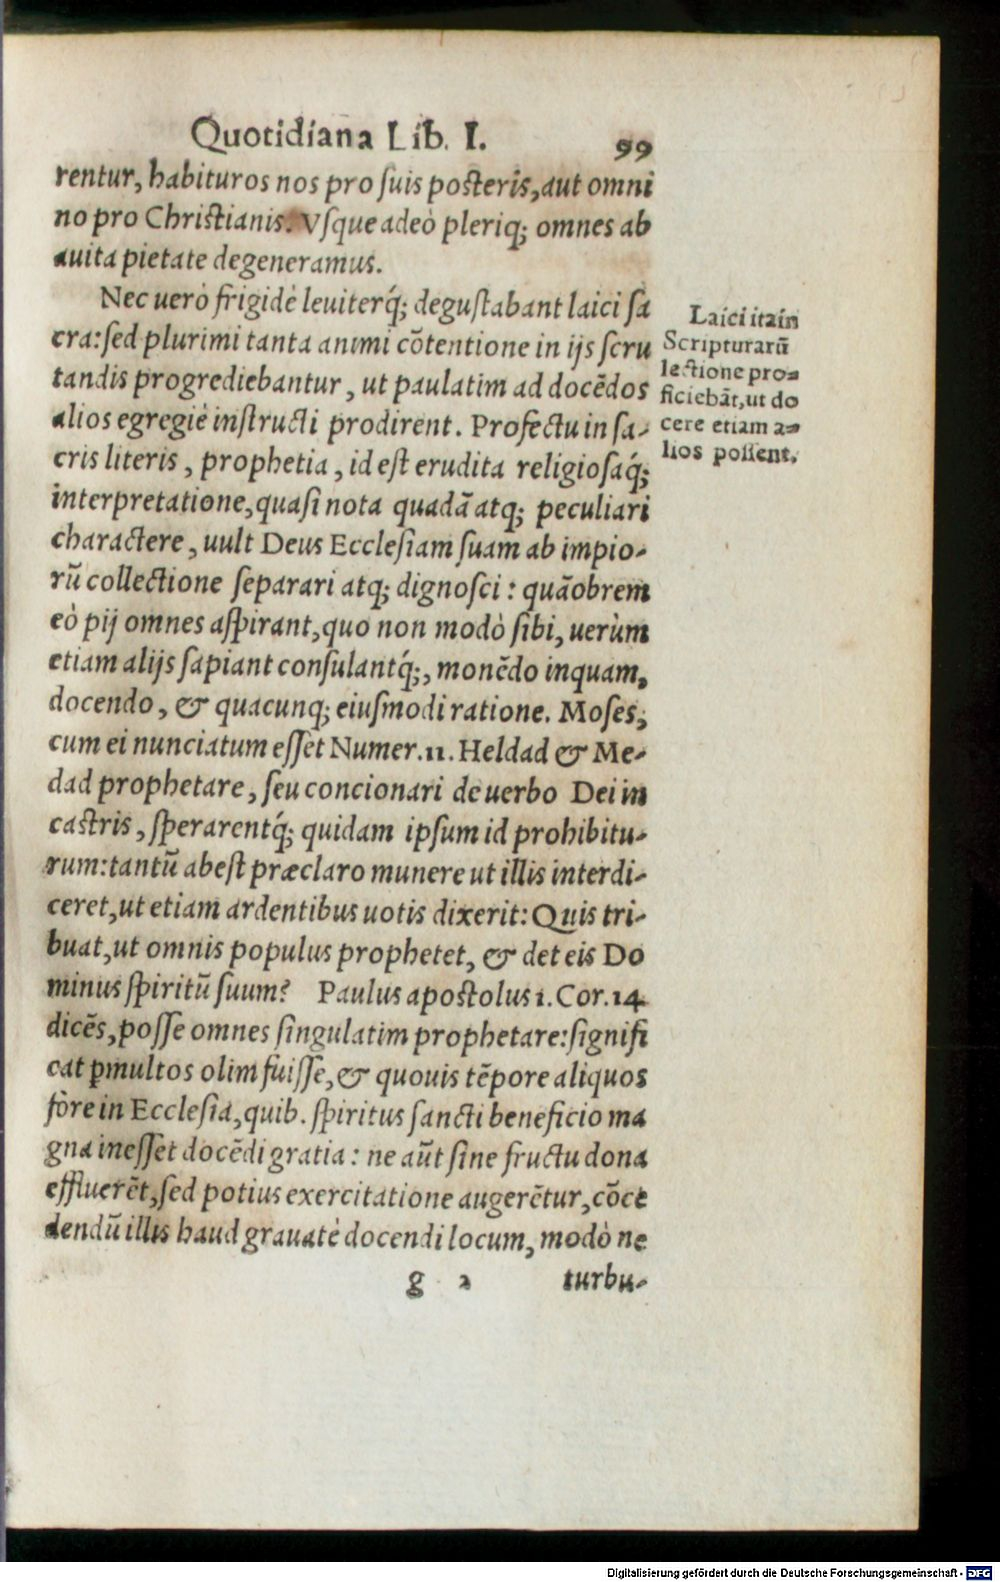 Quotidiana Lib. I.
99
rentur, habituros nos pro ſuis poſteris, aut omni
no pro Chriſtianis. Vſque adeò pleriq; omnes ab
auita pietate degeneramus.
Nec uerò frigidè leuiterq́; deguſtabant laici ſa
cra: ſed plurimi tanta animi cõtentione in ijs ſcru
tandis progrediebantur, ut paulatim ad docẽdos
alios egregiè inſtructi prodirent. Profectu in ſa-
cris literis, prophetia, id eſt erudita religioſaq́;
interpretatione, quaſi nota quadã atq; peculiari
charactere, uult Deus Eccleſiam ſuam ab impio-
rũ collectione ſeparari atq; dignoſci: quãobrem
eò pij omnes aſpirant, quo non modò ſibi, uerùm
etiam alijs ſapiant conſulantq́;, monẽdo inquam,
docendo, & quacunq; eiuſmodi ratione. Moſes,
cum ei nunciatum eſſet Numer. 11. Heldad & Me-
dad prophetare, ſeu concionari de uerbo Dei in
caſtris, ſperarentq́; quidam ipſum id prohibitu-
rum: tantũ abeſt præclaro munere ut illis interdi-
ceret, ut etiam ardentibus uotis dixerit: Quis tri-
buat, ut omnis populus prophetet, & det eis Do
minus ſpiritũ ſuum? Paulus apoſtolus 1. Cor. 14
dicẽs, poſſe omnes ſingulatim prophetare: ſignifi
cat ꝑmultos olim fuiſſe, & quouis tẽpore aliquos
fore in Eccleſia, quib. ſpiritus ſancti beneficio ma
gna ineſſet docẽdi gratia: ne aũt ſine fructu dona
effluerẽt, ſed potius exercitatione augerẽtur, cõce
dendũ illis haud grauatè docendi locum, modò ne
g 2
turbu-
Laici ita in
Scripturarũ
lectione pro-
ficiebãt, ut do
cere etiam a-
lios poſſent.
Digitalisierung gefördert durch die Deutsche Forschungsgemeinschaft - DFG